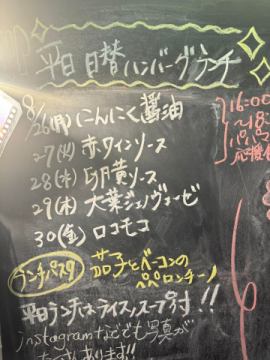 平日 日替ハンバーグランチ
8/26(月) にんにく醤油
27(火) 赤ワインソース
28(水) 卵黄ソース
29(木) 大葉ジェノヴェーゼ
30(金) ロコモコ
ランチパスタ 茄子とベーコンの
ペペロンチーノ
平日ランチはライス、スープ付!!
instagramなどでも写真が
あります!!
16:00
〜18: